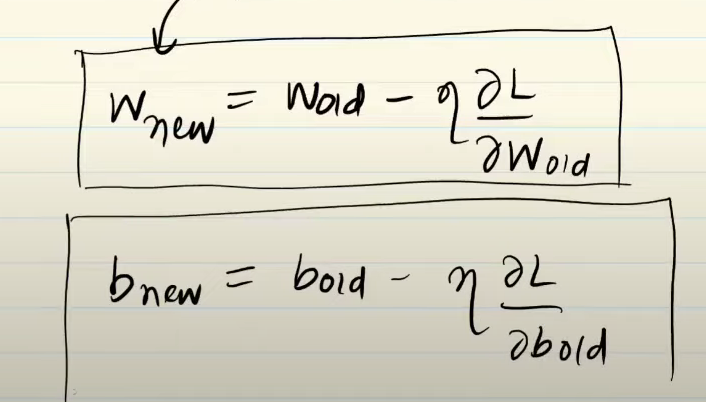 W_new = W_old - η ∂L/∂W_old
b_new = b_old - η ∂L/∂b_old